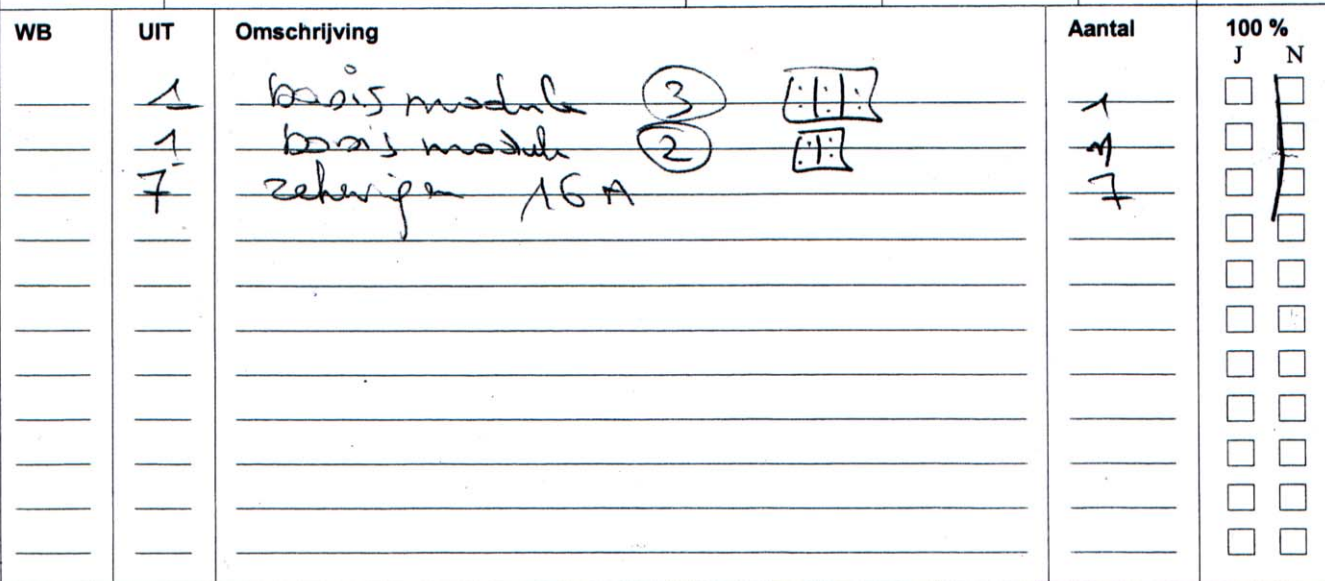 WB UIT Omschrijving Aantal 100 %
J N
1 basis module 3 1
1 basis module 2 1
7 zekeringen 16 A 7